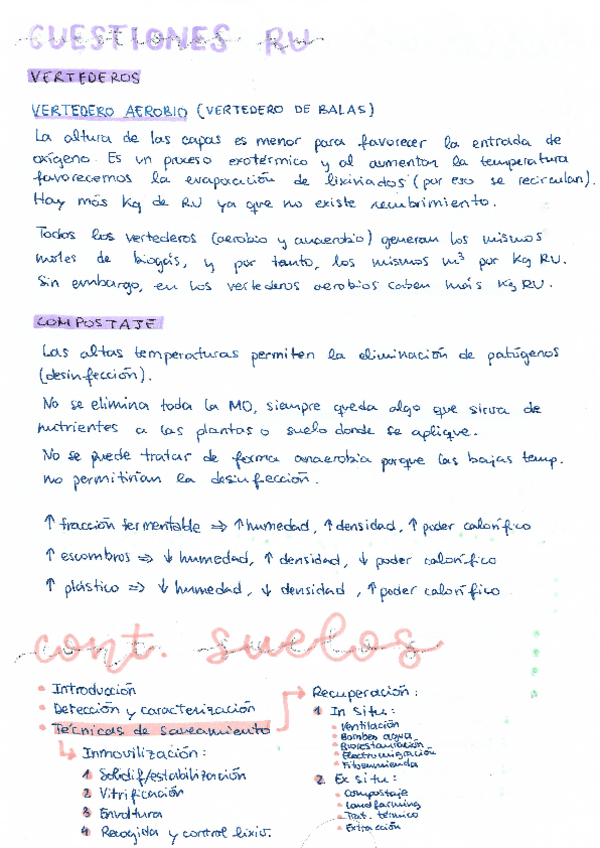 CUESTIONES RU
VERTEDEROS
VERTEDERO AEROBIO (VERTEDERO DE BALAS)
La altura de las capas es menor para favorecer la entrada de
oxígeno. Es un proceso exotérmico y al aumentar la temperatura
favorecemos la evaporación de lixiviados (por eso se recirculan).
Hay más Kg de RU ya que no existe recubrimiento.
Todos los vertederos (aerobio y anaerobio) generan los mismos
moles de biogás, y por tanto, los mismos m³ por Kg RU.
Sin embargo, en los vertederos aerobios caben más Kg RU.
COMPOSTAJE
Las altas temperaturas permiten la eliminación de patógenos
(desinfección).
No se elimina toda la MO, siempre queda algo que sirva de
nutrientes a las plantas o suelo donde se aplique.
No se puede tratar de forma anaerobia porque las bajas temp.
no permitirían la desinfección.
↑ fracción fermentable ⇒ ↑ humedad, ↑ densidad, ↑ poder calorífico
↑ escombros ⇒ ↓ humedad, ↑ densidad, ↓ poder calorífico
↑ plástico ⇒ ↓ humedad, ↓ densidad, ↑ poder calorífico
cont. suelos
• Introducción
• Detección y caracterización
• Técnicas de saneamiento
Inmovilización:
1 Solidif/estabilización
2 Vitrificación
3 Envoltura
4 Recogida y control lixiv.
Recuperación:
1 In situ:
• Ventilación
• Bombeo agua
• Biorestauración
• Electromigración
• Fitoenmienda
2. Ex situ:
• Compostaje
• Landfarming
• Trat. térmico
• Extracción